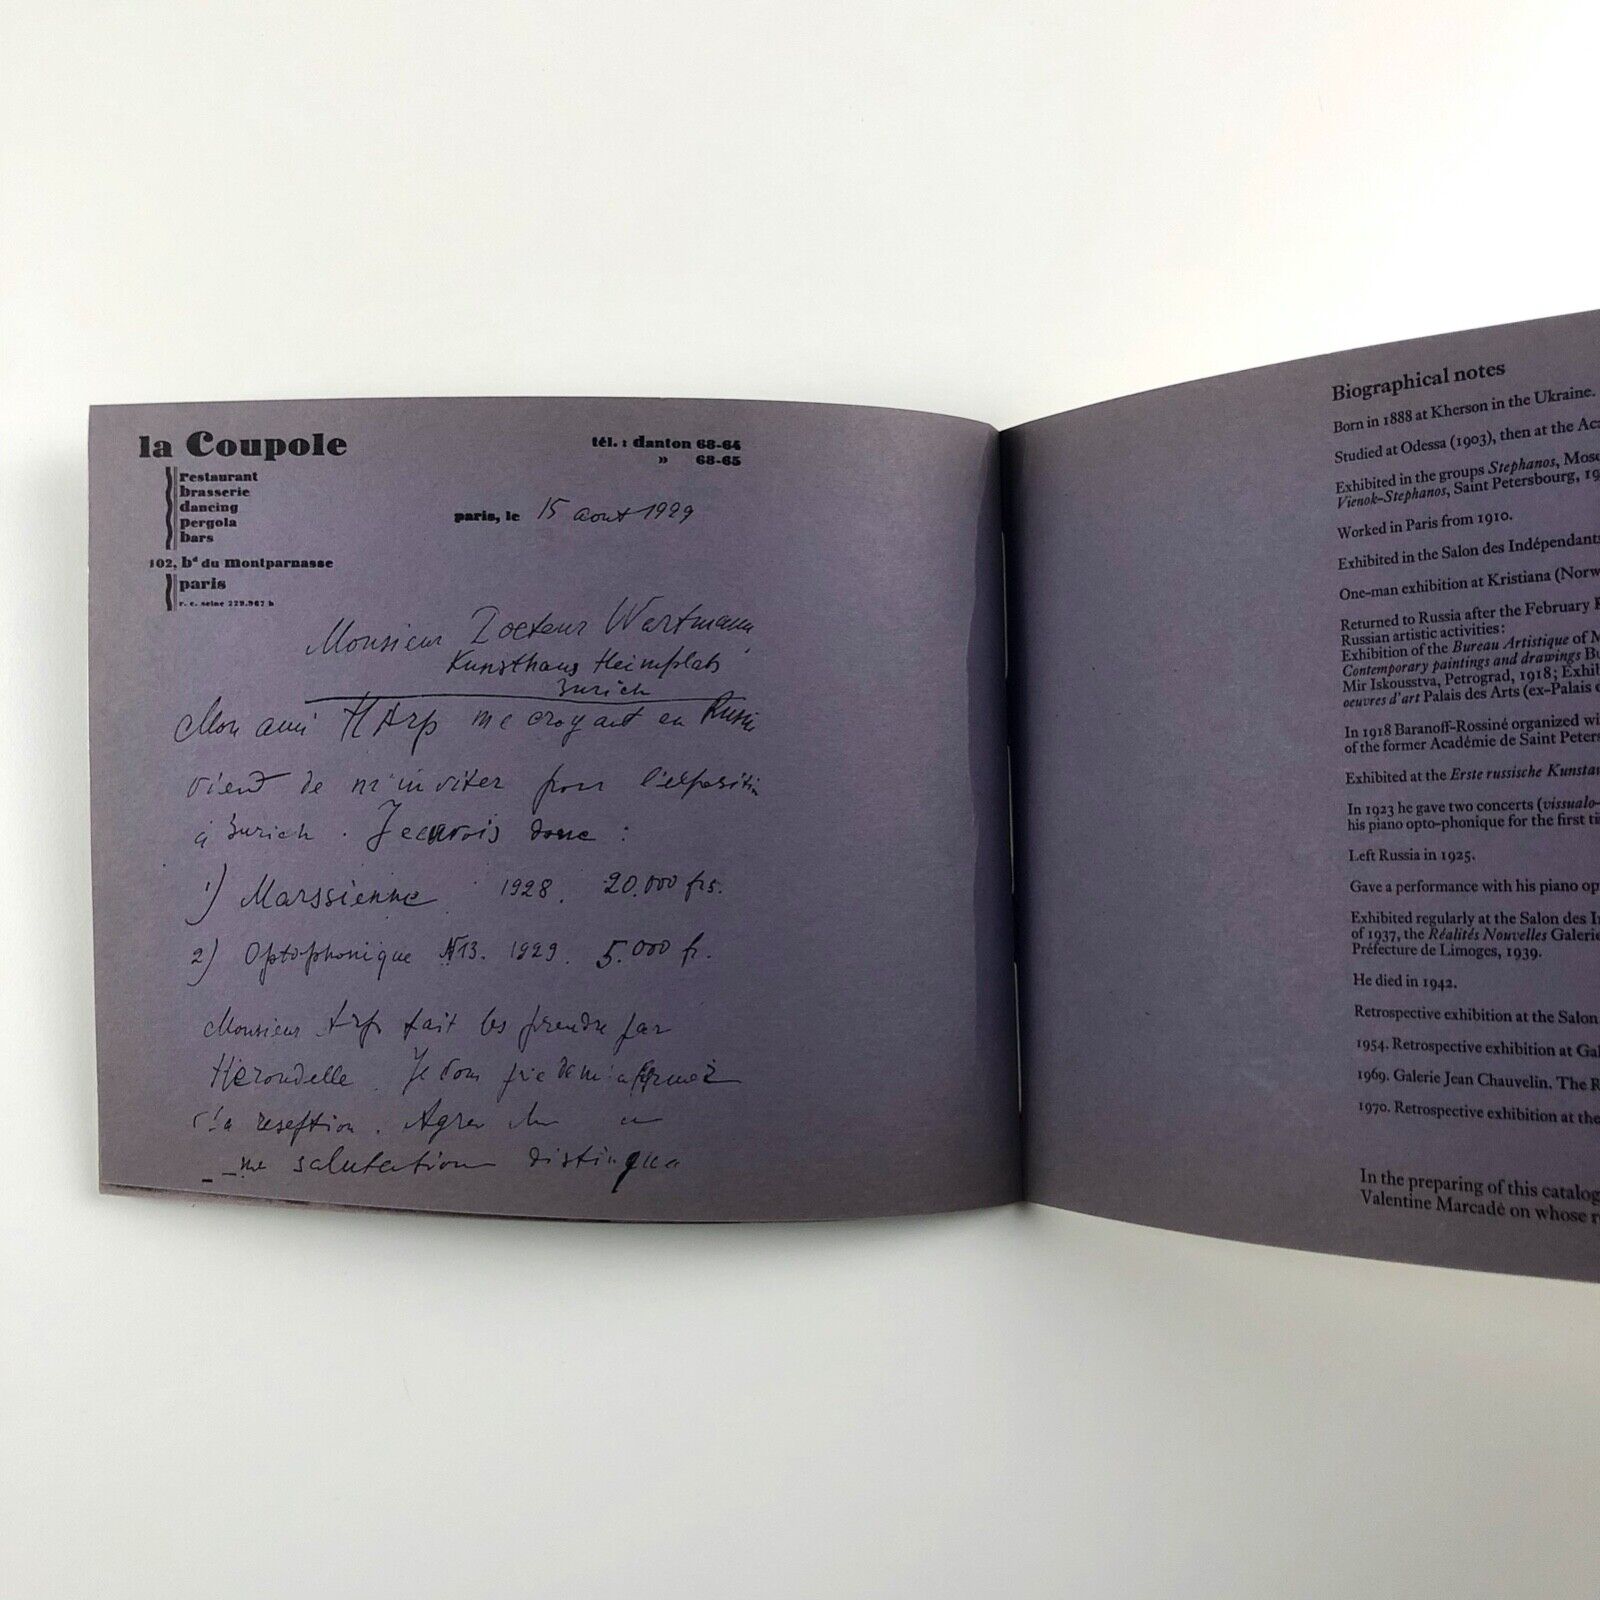 la Coupole
restaurant
brasserie
dancing
pergola
bars
102, bd du montparnasse
paris
r. c. seine 229.967 b
tél. : danton 68-64
» 68-65
paris, le 15 aout 1929
Monsieur Docteur Wartmann,
Kunsthaus Heimplatz
Zurich
Mon ami H Arp me croyant en Russie
vient de m'inviter pour l'exposition
à Zurich. J'ecnvois donc :
1) Marssienne 1928. 20.000 frs.
2) Optophonique N13. 1929. 5.000 fr.
Monsieur Arp fait les prendre par
Herondelle. Je vous prie de m'afermez
la reseption. Agree
salutation distinqua
Biographical notes
Born in 1888 at Kherson in the Ukraine.
Studied at Odessa (1903), then at the
Exhibited in the groups Stephanos,
Vienok-Stephanos, Saint Petersbourg,
Worked in Paris from 1910.
Exhibited in the Salon des Indépendants
One-man exhibition at Kristiana
Returned to Russia after the February
Russian artistic activities:
Exhibition of the Bureau Artistique of
Contemporary paintings and drawings
Mir Iskousstva, Petrograd, 1918;
oeuvres d'art Palais des Arts (ex-Palais
In 1918 Baranoff-Rossiné organized
of the former Académie de Saint
Exhibited at the Erste russische
In 1923 he gave two concerts
his piano opto-phonique for the first
Left Russia in 1925.
Gave a performance with his piano
Exhibited regularly at the Salon des
of 1937, the Réalités Nouvelles
Préfecture de Limoges, 1939.
He died in 1942.
Retrospective exhibition at the Salon
1954. Retrospective exhibition at
1969. Galerie Jean Chauvelin. The
1970. Retrospective exhibition at the
In the preparing of this
Valentine Marcadé on whose